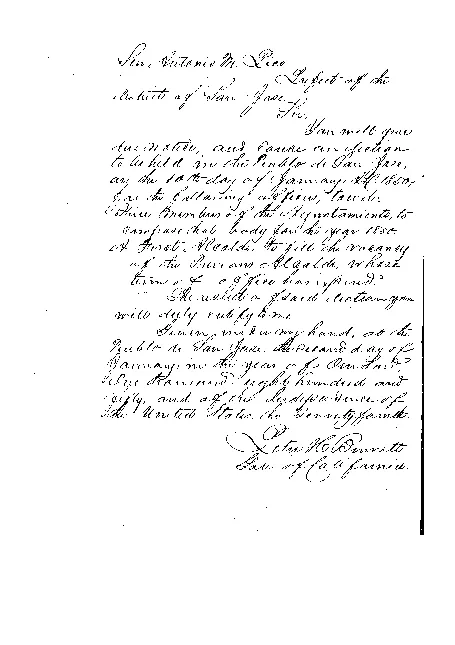 Sen. Antonio M. Pico
Prefect of the
district of San Jose
Sir,
You will give
due notice, and cause an election
to be held in the Pueblo de San Jose,
on the 10th day of January 1850,
for the following officers, to wit:
Three Members of the Ayuntamiento, to
compose that body for the year 1850.
A First Alcalde to fill the vacancy
of the Previous Alcalde, whose
term of office has expired.
The result of said election you
will duly certify to me
Given, under my hand, at the
Pueblo de San Jose the second day of
January in the year of Our Lord
One thousand eight hundred and
fifty, and of the Independence of
the United States the Seventy fourth
Peter H. Burnett
Gov. of California